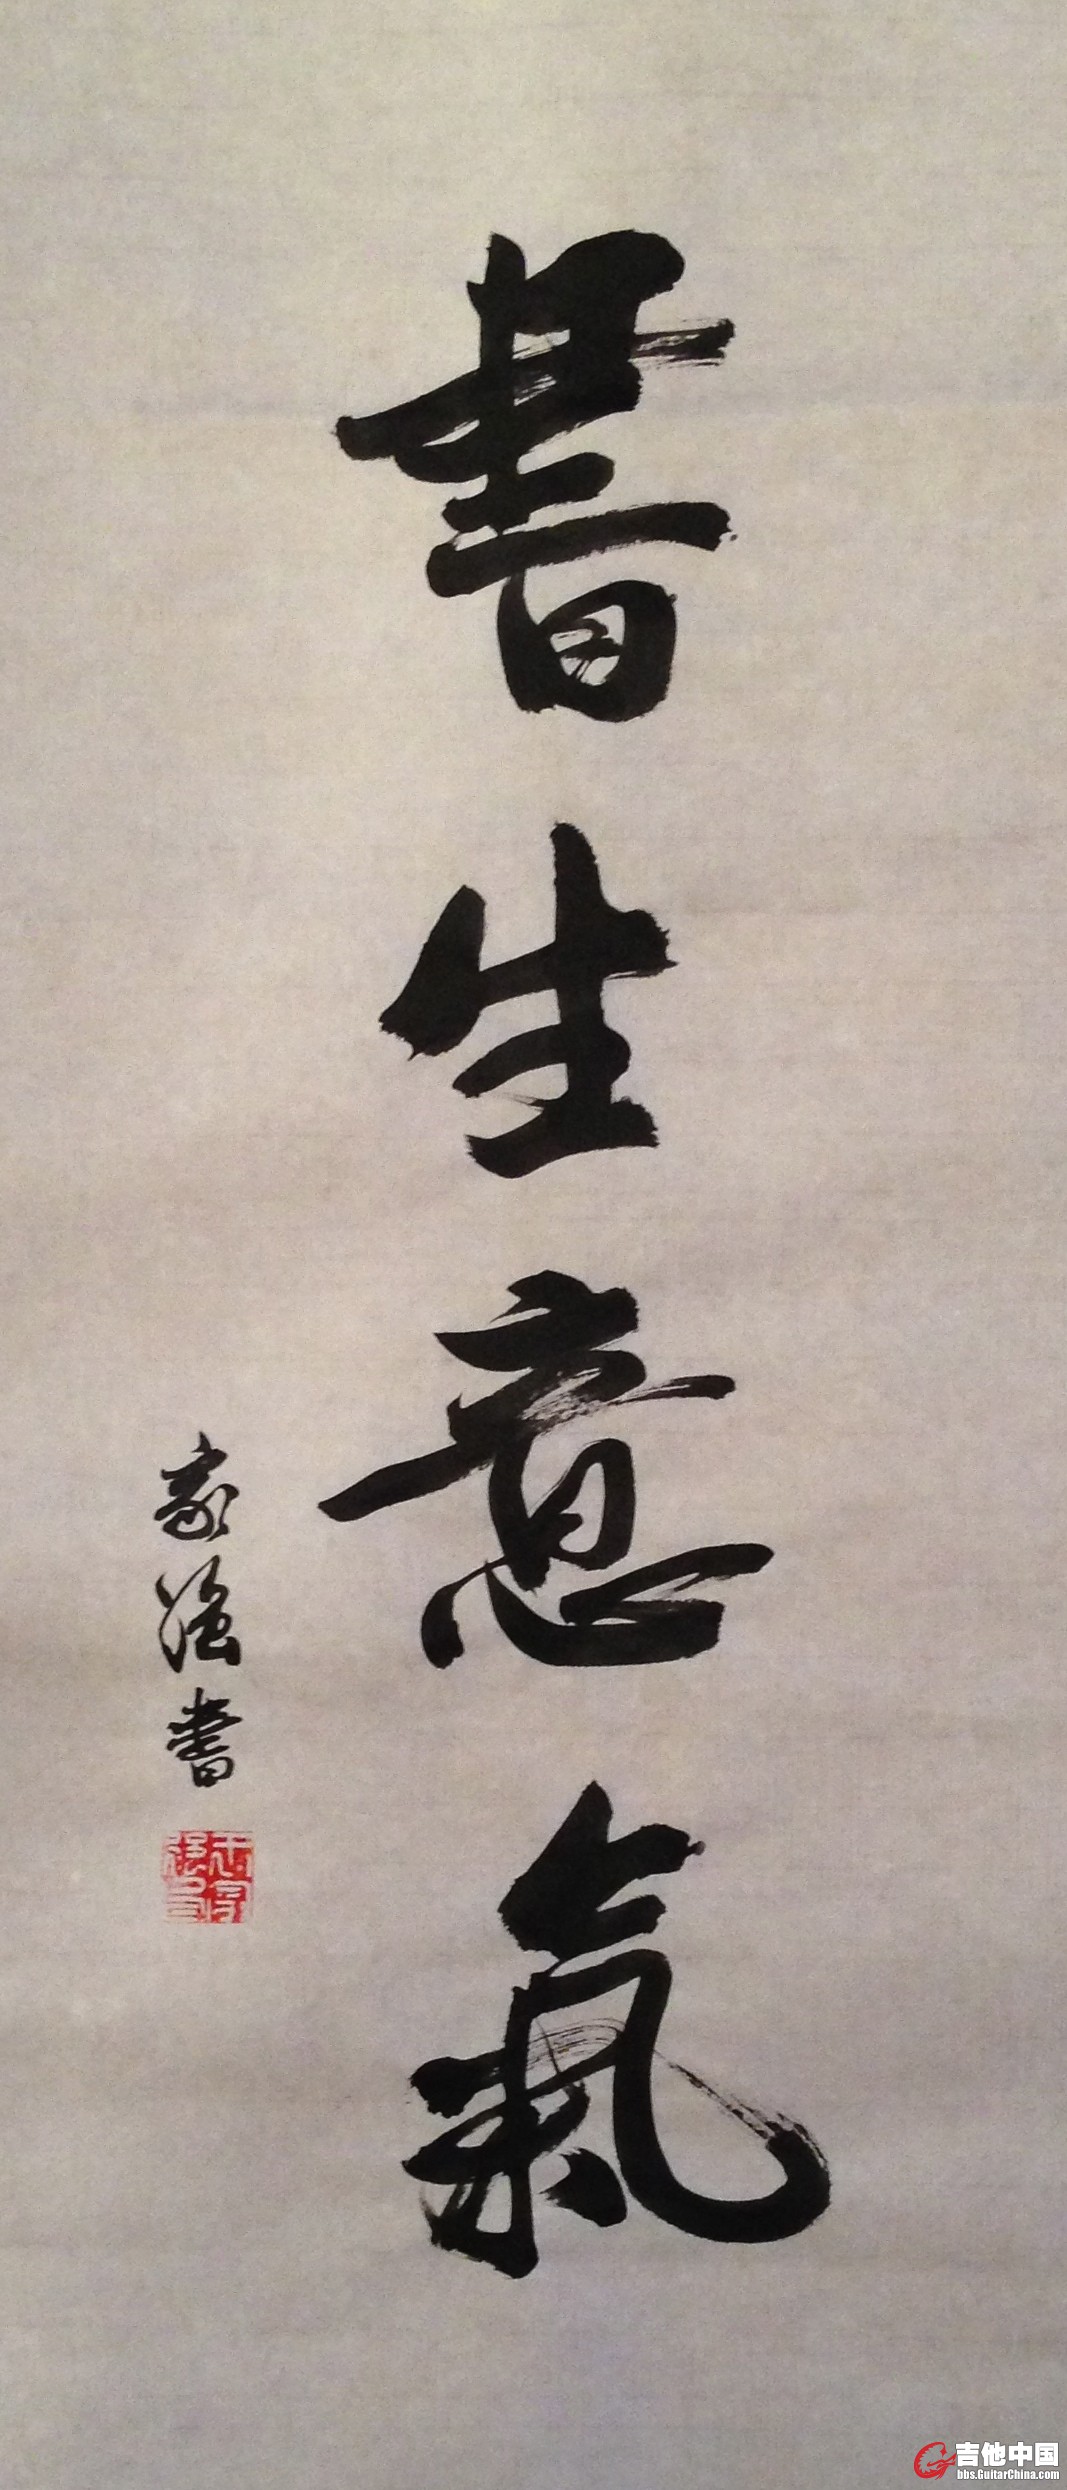 書生意氣
家強書
吉他中国
bbs.GuitarChina.com